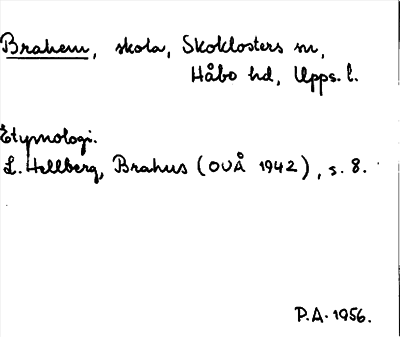 Brahem, skola, Skoklosters sn,
Håbo hd, Upps. l.
Etymologi.
L. Hellberg, Brahus (OUÅ 1942), s. 8.
P.A. 1956.